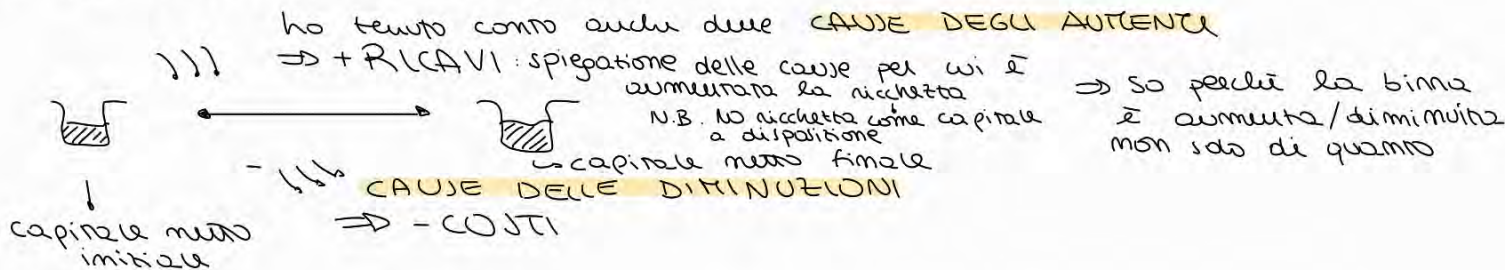 ho tenuto conto anche delle CAUSE DEGLI AUMENTI
⇒ + RICAVI: spiegazione delle cause per cui è
aumentata la ricchezza
N.B. NO ricchezza come capitale
a disposizione
↳ capitale netto finale
⇒ so perché la birra
è aumenta/diminuita
non solo di quanto
- CAUSE DELLE DIMINUZIONI
⇒ - COSTI
capitale netto
iniziale